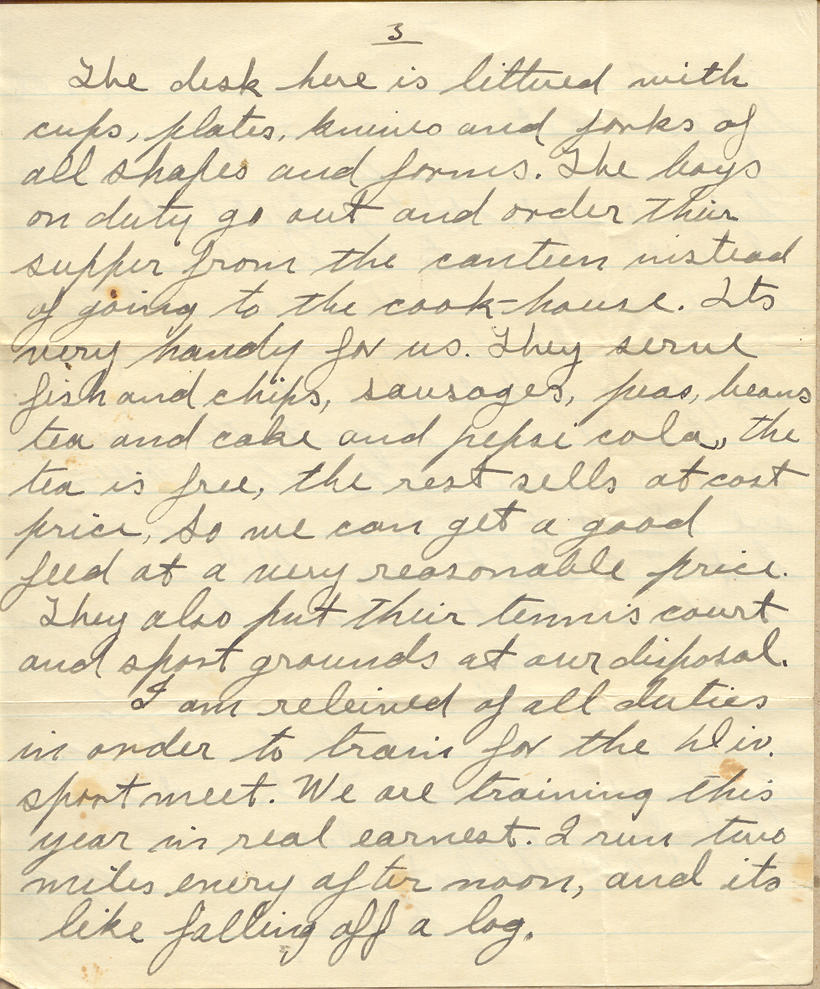 3
The desk here is littered with
cups, plates, knives and forks of
all shapes and forms. The boys
on duty go out and order their
supper from the canteen instead
of going to the cook-house. Its
very handy for us. They serve
fish and chips, sausages, peas, beans
tea and cake and pepsi cola,, the
tea is free, the rest sells at cost
price, so we can get a good
feed at a very reasonable price.
They also put their tennis court
and sport grounds at our disposal.
I am releived of all duties
in order to train for the Div.
sport meet. We are training this
year in real earnest. I run two
miles every after noon, and its
like falling off a log.